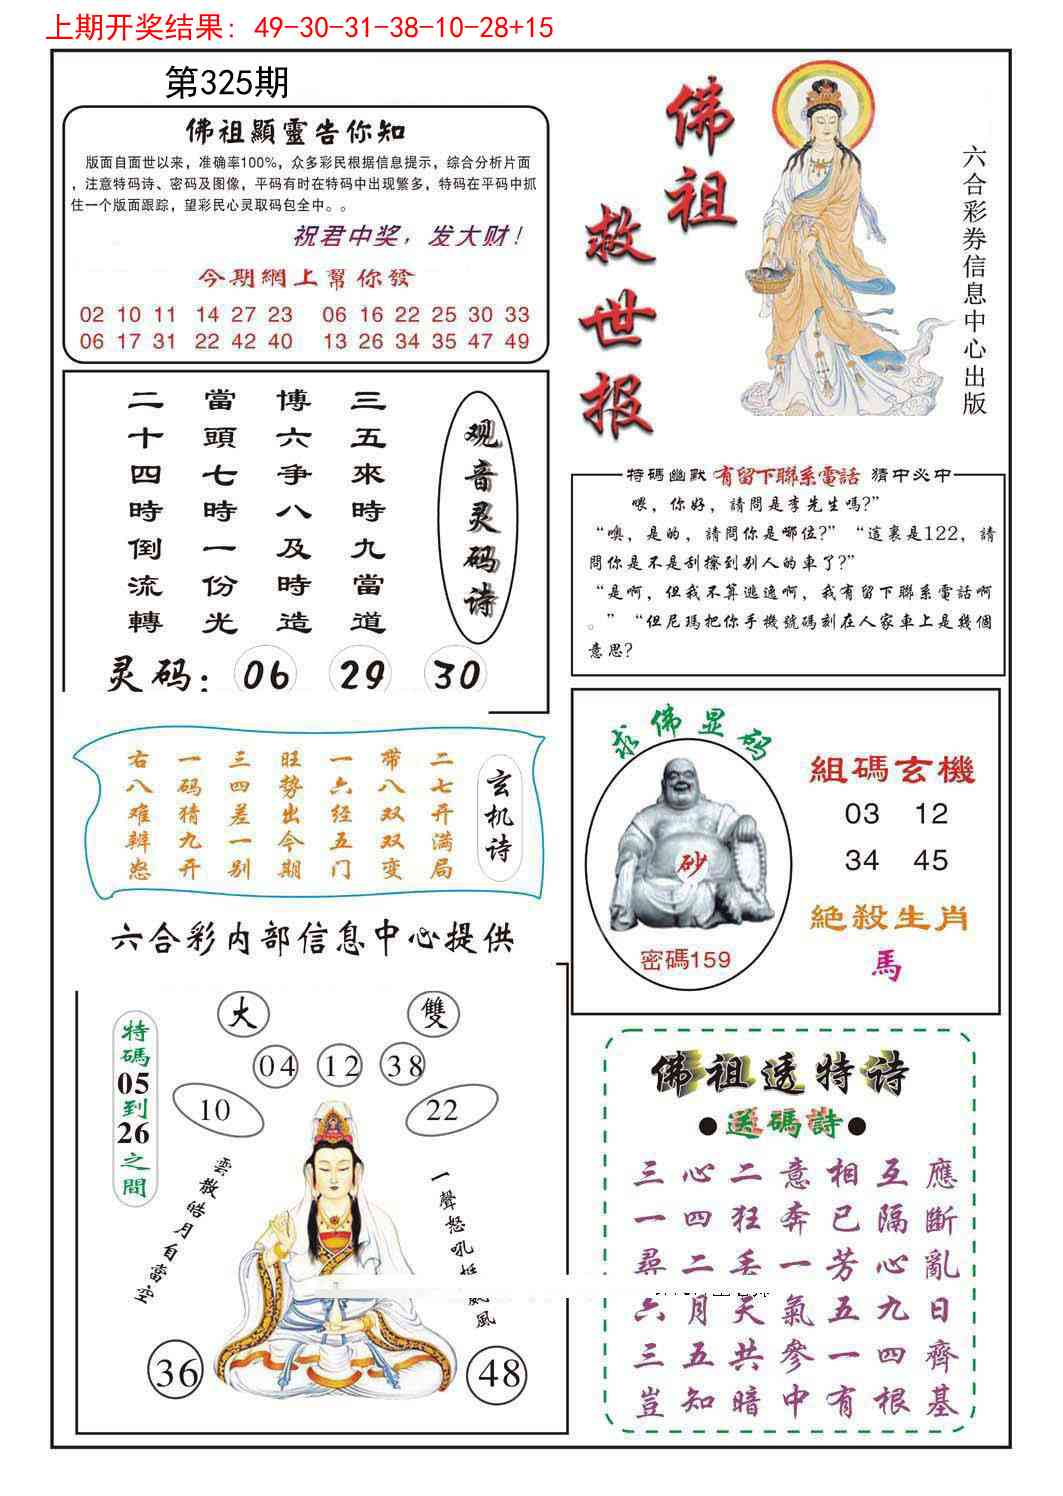 上期开奖结果: 49-30-31-38-10-28+15
第325期
佛祖顯靈告你知
版面自面世以来，准确率100%，众多彩民根据信息提示，综合分析片面
，注意特码诗、密码及图像，平码有时在特码中出现繁多，特码在平码中抓
住一个版面跟踪，望彩民心灵取码包全中。。
祝君中奖，发大财！
今期網上幫你發
02 10 11 14 27 23 06 16 22 25 30 33
06 17 31 22 42 40 13 26 34 35 47 49
佛祖
救世报
六合彩券信息中心出版
观音灵码诗
三五來時九當道
博六爭八及時造
當頭七時一份光
二十四時倒流轉
灵码: 06 29 30
特碼幽默 有留下聯系電話 猜中必中
喂，你好，請問是李先生嗎?”
“噢，是的，請問你是哪位?” “這裏是122，請
問你是不是刮擦到别人的車了?”
“是啊，但我不算逃逸啊，我有留下聯系電話啊
。” “但尼瑪把你手機號碼刻在人家車上是幾個
意思?
玄机诗
二七开满局
带八双双变
一六经五门
旺势出今期
三四差一别
一码猜九开
右八难辨愁
求佛显码
砂
密碼159
組碼玄機
03 12
34 45
絶殺生肖
馬
六合彩内部信息中心提供
大 雙
04 12 38
10 22
特碼05到26之間
雲散皓月自當空
一聲怒吼
風
36 48
佛祖透特诗
●送碼詩●
三心二意相互應
一四狂奔已隔斷
尋二丢一芳心亂
六月天氣五九日
三五共參一四齊
豈知暗中有根基